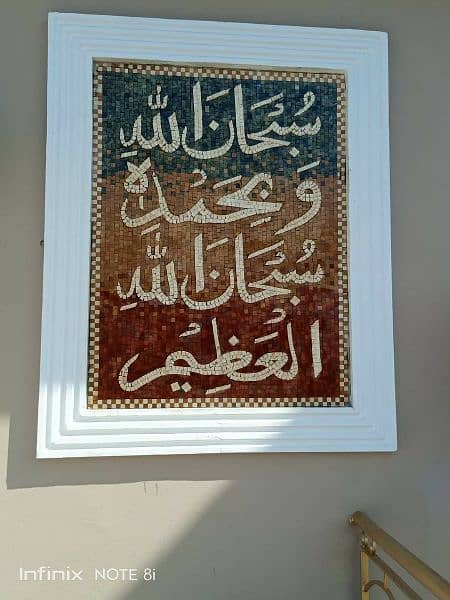 سُبْحَانَ اللهِ
وَ بِحَمْدِهِ
سُبْحَانَ اللهِ
الْعَظِيْمِ
Infinix NOTE 8i